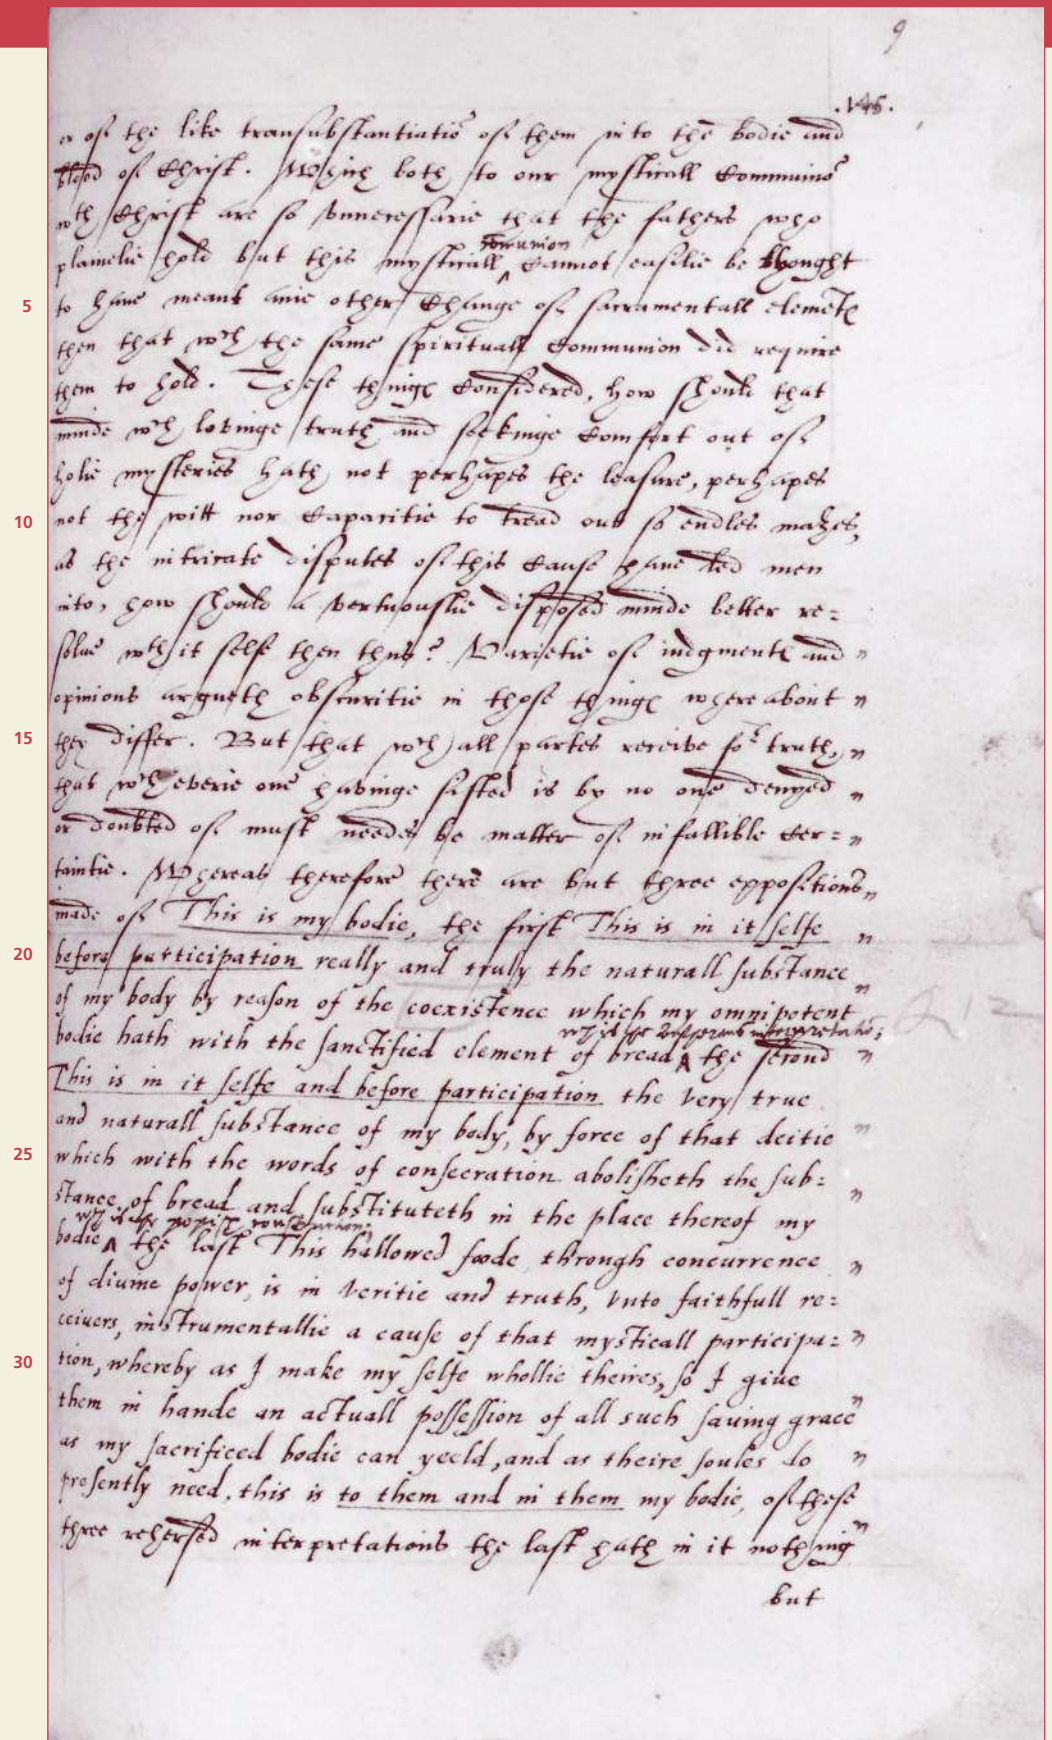 9
.145.
or of the like transubstantiatiō of them into the bodie and
blood of Christ. Which both to our mysticall Communiō
wth Christ are so vnnecessarie that the fathers who
comunion
plainelie hold but this mysticall ‸ Cannot easilie be thought
5 to haue meant anie other Change of sacramentall elemētes
then that wch the same spirituall Communion did require
them to hold. These thinges Considered, how should that
minde wch lovinge truth and seekinge Comfort out of
holie mysteries hath not perhapes the leasure, perhapes
10 not the witt nor Capacitie to tread out so endles mazes,
as the intricate disputes of this Cause haue led men
into, how should a vertuouslie disposed minde better re=
solue wth it self then thus? Varietie of iudgmentes and "
opinions argueth obscuritie in those thinges whereabout "
15 they differ. But that wch all partes receive for truth, "
that wch everie one havinge sifted is by no one denyed "
or doubted of must needes be matter of infallible Cer= "
taintie. Whereas therefore there are but three expositions "
made of This is my bodie, the first This is in it selfe "
20 before participation really and truly the naturall substance "
of my body by reason of the coexistence which my omnipotent
bodie hath with the sanctified element of bread ‸ the second "
This is in it selfe and before participation the very true
and naturall substance of my body, by force of that deitie "
25 which with the words of consecration abolisheth the sub=
stance of bread and substituteth in the place thereof my "
bodie ‸ the last This hallowed foode through concurrence "
of diuine power, is in veritie and truth, vnto faithfull re=
ceiuers, instrumentallie a cause of that mysticall participa= "
30 tion, whereby as I make my selfe whollie theires, so I giue
them in hande an actuall possession of all such sauing grace "
as my sacrificed bodie can yeeld, and as theire soules do "
presently need, this is to them and in them my bodie, of these
three rehersed interpretations the last hath in it nothing "
but